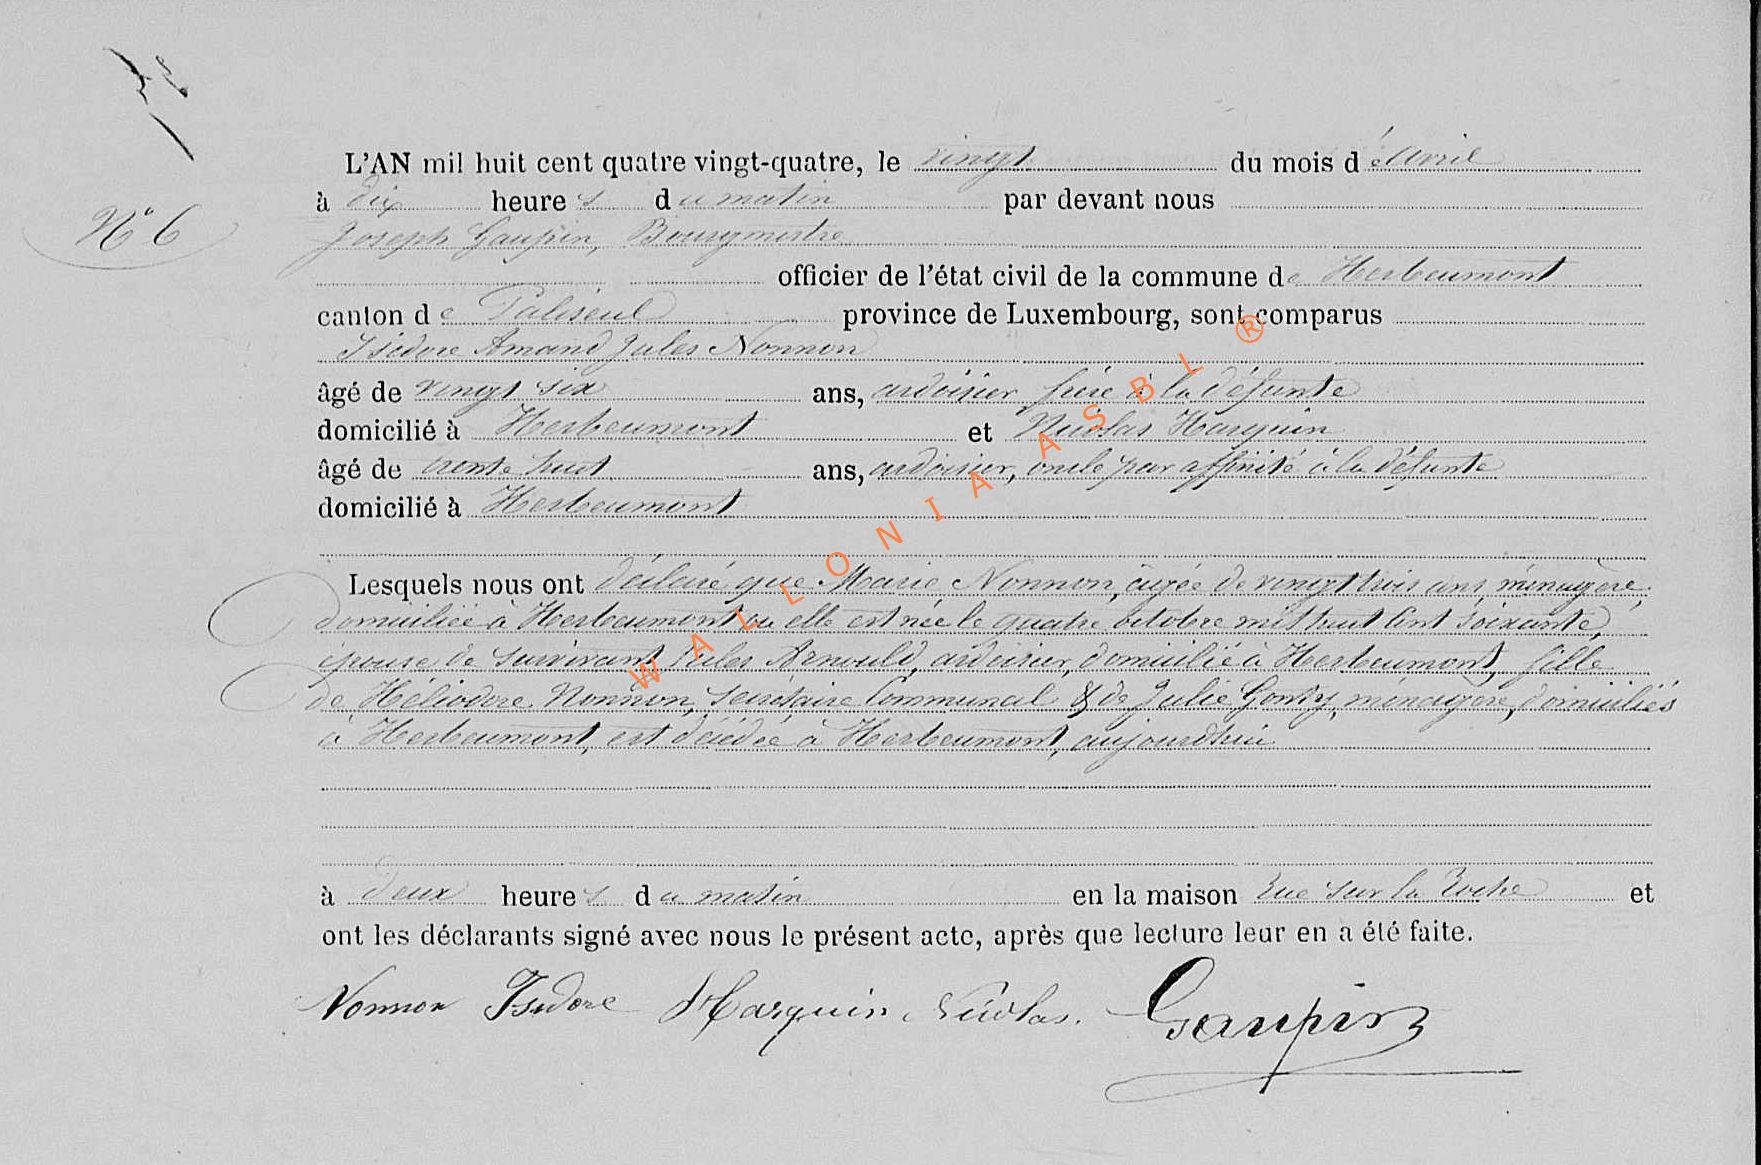 L'AN mil huit cent quatre vingt-quatre, le vingt du mois d'avril
N° 6
à dix heures du matin par devant nous
Joseph Gaupin, Bourgmestre
officier de l'état civil de la commune de Herbeumont
canton de Paliseul province de Luxembourg, sont comparus
Isidore Amand Jules Nonnon
âgé de vingt six ans, ardoisier, frère à la défunte
domicilié à Herbeumont et Nicolas Harquin
âgé de trente huit ans, ardoisier, oncle par affinité à la défunte
domicilié à Herbeumont
Lesquels nous ont déclaré que Marie Nonnon, âgée de vingt trois ans, ménagère,
domiciliée à Herbeumont où elle est née le quatre octobre mil huit cent soixante,
épouse de survivant Jules Arnould, ardoisier, domicilié à Herbeumont, fille
de Héliodore Nonnon, secrétaire communal & de Julie Gonry, ménagère, domiciliés
à Herbeumont, est décédée à Herbeumont, aujourd'hui
à deux heures du matin en la maison rue sur la Roche et
ont les déclarants signé avec nous le présent acte, après que lecture leur en a été faite.
Nonnon Isidore Harquin Nicolas. Gaupin
WALLONIA ASBL ®